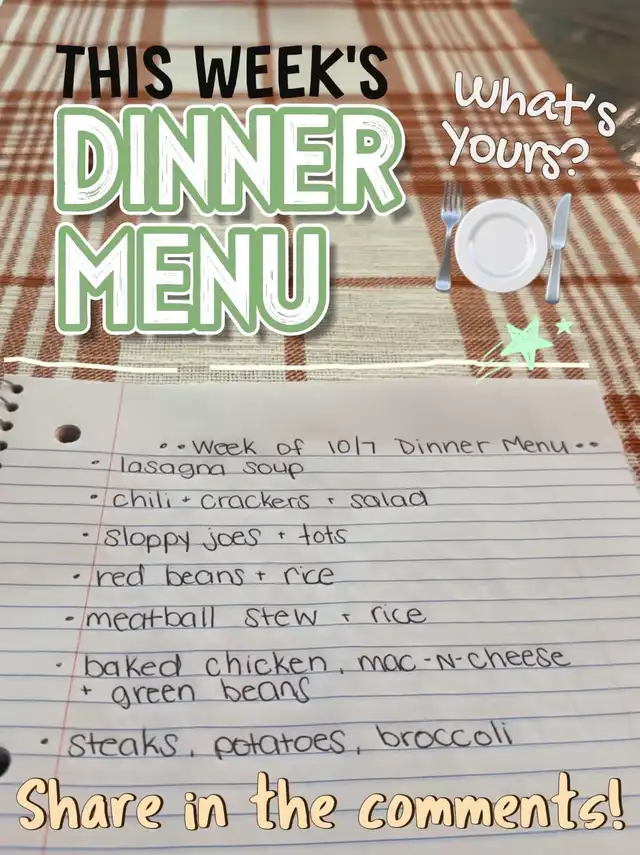 THIS WEEK'S
DINNER
MENU
What's
yours?
••Week of 10/7 Dinner Menu••
• lasagna soup
• chili + crackers + salad
• sloppy joes + tots
• red beans + rice
• meatball stew + rice
• baked chicken, mac-N-cheese
+ green beans
• steaks, potatoes, broccoli
Share in the comments!